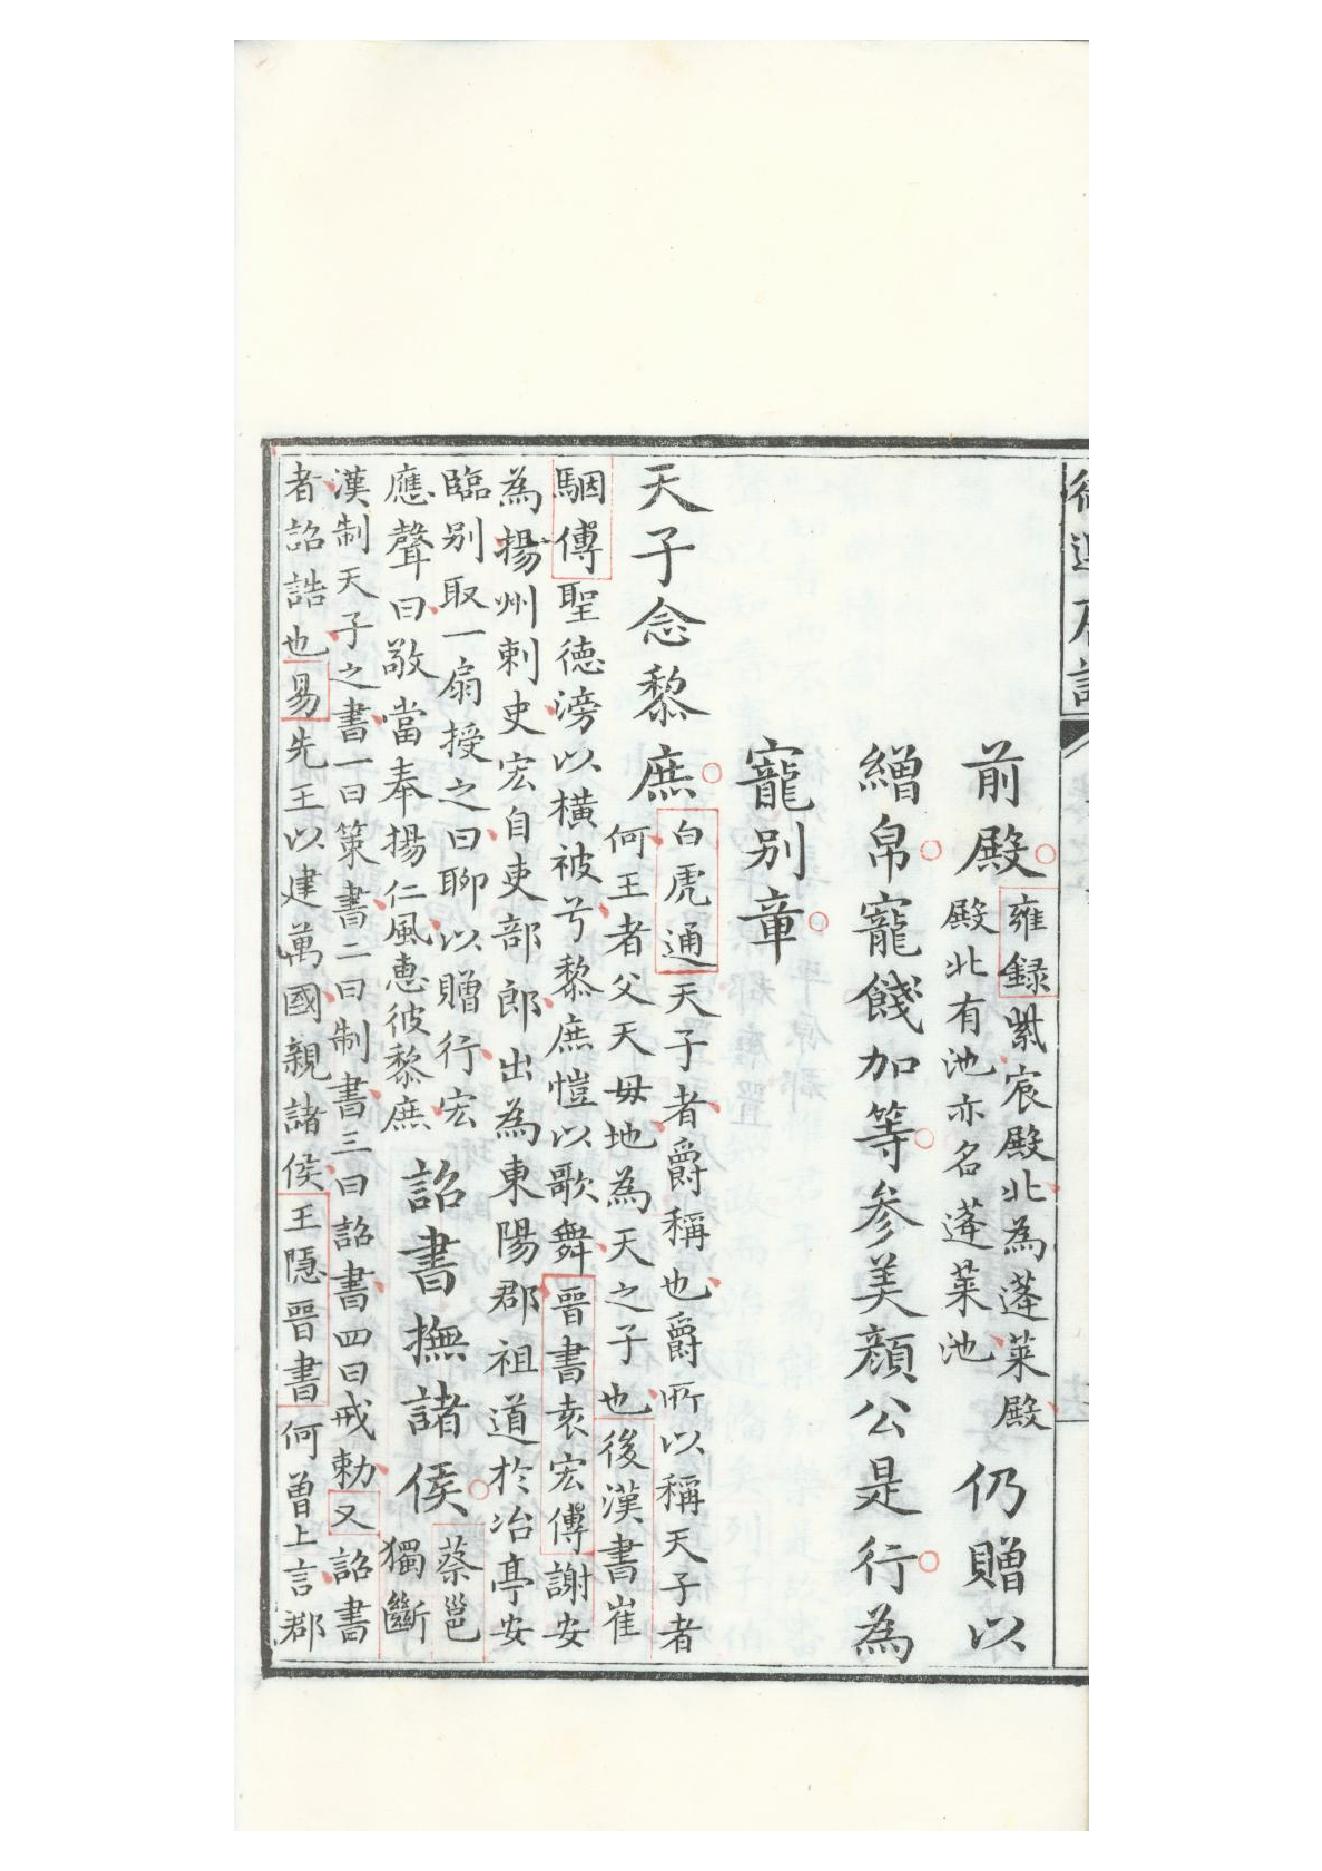 前殿
雍錄紫宸殿北為蓬萊殿
殿北有池亦名蓬萊池
仍贈以
繒帛寵餞加等參美顏公是行為
寵別章
天子念黎庶
白虎通天子者爵稱也爵所以稱天子者
何王者父天母地為天之子也後漢書崔
駰傳聖德滂以橫被兮黎庶愷以歌舞晉書袁宏傳謝安
為揚州刺史宏自吏部郎出為東陽郡祖道於冶亭安
臨別取一扇授之曰聊以贈行宏
應聲曰敬當奉揚仁風惠彼黎庶
詔書撫諸侯
蔡邕
獨斷
漢制天子之書一曰策書二曰制書三曰詔書四曰戒勅又詔書
者詔誥也易先王以建萬國親諸侯王隱晉書何曾上言郡